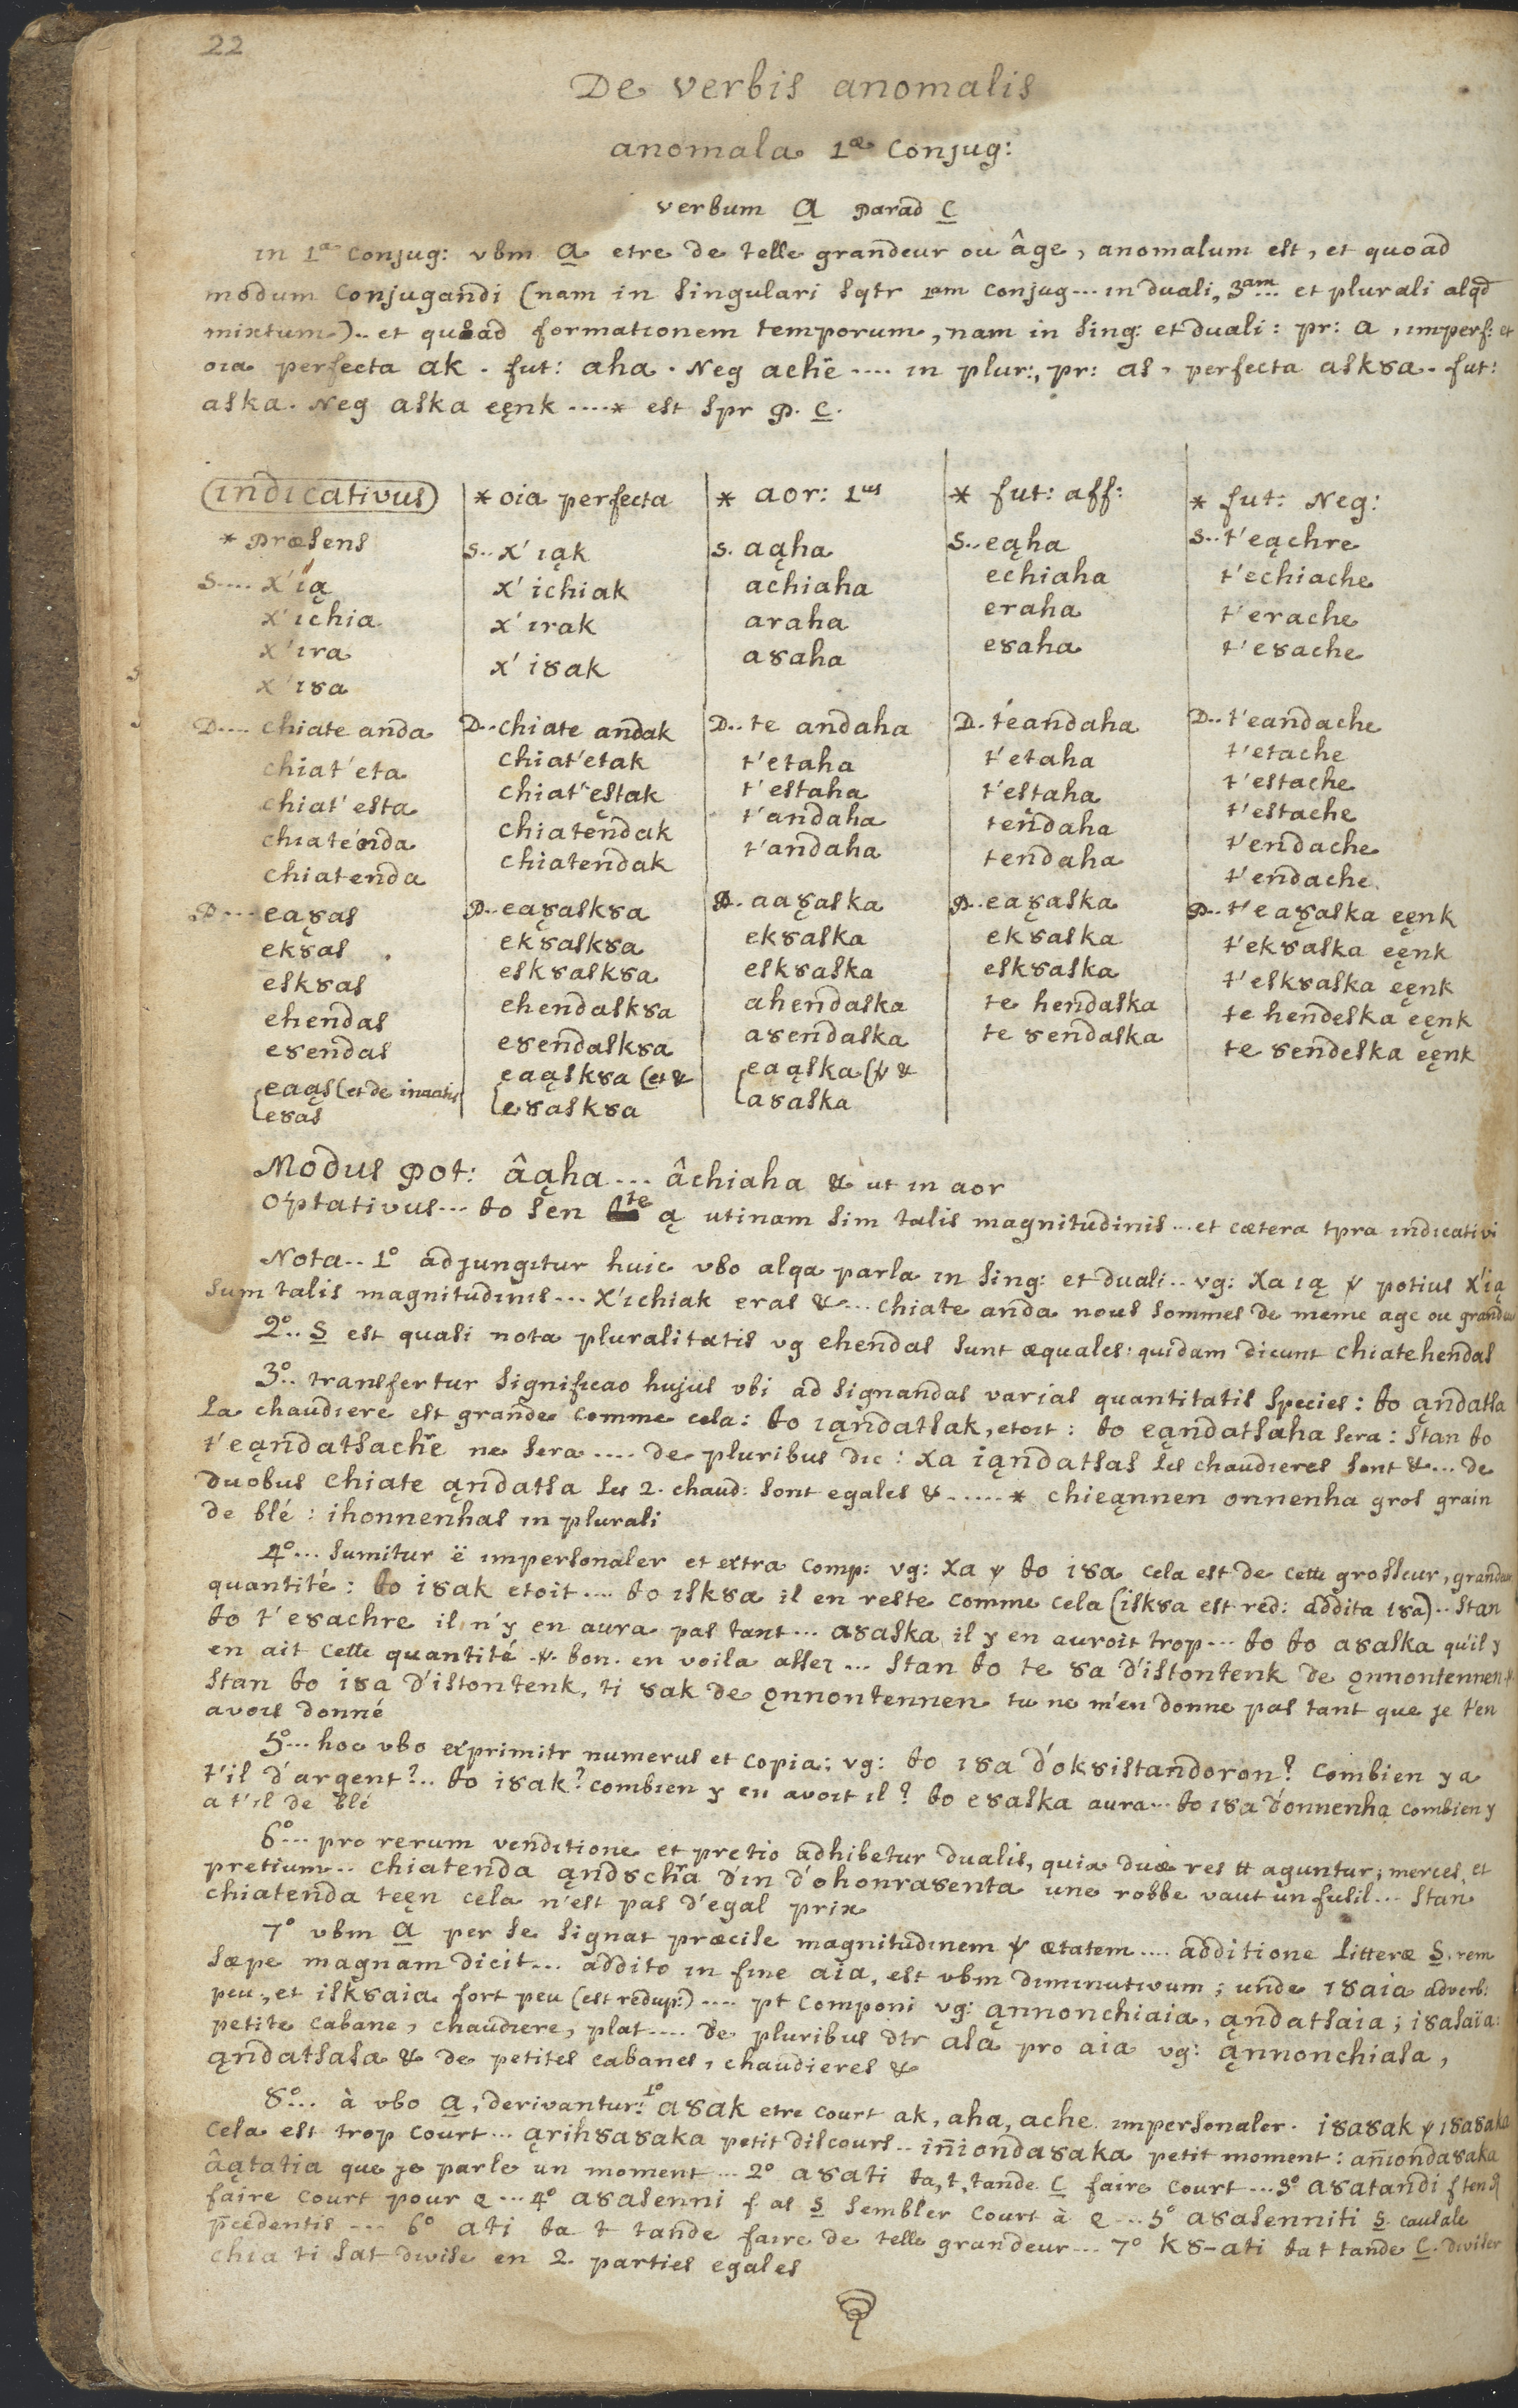 22
De verbis anomalis
anomala 1æ Conjug:
verbum a parad C
in 1a Conjug: vbm a etre de telle grandeur ou âge, anomalum est, et quoad
modum Conjugandi (nam in singulari sqtr 1am conjug... in duali, 3am... et plurali alqd
mixtum).. et quoad formationem temporum, nam in sing: et duali: pr: a, imperf: et
oia perfecta ak. fut: aha. Neg achë .... in plur:, pr: as, perfecta ask8a.. fut:
aska. Neg aska eęnk ....* est spr P. C.
indicativus
* Præsens
S.... x'ią
x'ichia
x'ira
x'i8a
D.... chiate anda
chiat'eta
chiat'esta
chiatenda
chiatenda
P... eą8as
ek8as
esk8as
ehendas
e8endas
eaąs (et de inaatis
e8as
* oia perfecta
S.. x'iąk
x'ichiak
x'irak
x'i8ak
D.. chiate andak
chiat'etak
chiat'estak
chiatendak
chiatendak
P.. eą8ask8a
ek8ask8a
esk8ask8a
ehendask8a
e8endask8a
eaąsk8a (et &
e8ask8a
* aor: 1us
S. aąha
achiaha
araha
a8aha
D.. te andaha
t'etaha
t'estaha
t'andaha
t'andaha
P. aa8aska
ek8aska
esk8aska
ahendaska
a8endaska
eaąska (v &
a8aska
* fut: aff:
S.. eąha
echiaha
eraha
e8aha
D. téandaha
t'etaha
t'estaha
tendaha
tendaha
P.. ea8aska
ek8aska
esk8aska
te hendaska
te 8endaska
* fut: Neg:
S.. t'eąchre
t'echiache
t'erache
t'e8ache
D.. t'eandache
t'etache
t'estache
t'estache
t'endache
t'endache
P.. t'ea8aska eęnk
t'ek8aska eęnk
t'esk8aska eęnk
te hendeska eęnk
te 8endeska eęnk
Modus Pot: âąha ... âchiaha & ut in aor
Optativus... to sen te ą utinam sim talis magnitudinis ... et cætera tpra indicativi
Nota.. 1o adjungitur huic vbo alqa parla in sing: et duali.. vg: xa ią v potius x'ią
sum talis magnitudinis ... x'ichiak eras & ... chiate anda nous sommes de meme age ou grandeu
2o.. S est quasi nota pluralitatis vg ehendas sunt æquales: quidam dicunt chiatehendas
3o.. transfertur significao hujus vbi ad signandas varias quantitatis species: to ąndatsa
la chaudiere est grande comme cela: to iąndatsak, etoit: to eąndatsaha sera: stan to
t'eąndatsachre ne sera .... de pluribus dic: xa iąndatsas les chaudieres sont & ... de
duobus chiate ąndatsa les 2. chaud: sont egales & ......* chieąnnen onnenha gros grain
de blé: ihonnenhas in plurali
4o... sumitur ë impersonaler et extra comp: vg: xa v to i8a cela est de cette grosseur, grandeur
quantité: to i8ak etoit .... to isk8a il en reste comme cela (isk8a est red: addita i8a).. stan
to t'e8achre il n'y en aura pas tant ... a8aska il y en auroit trop ... to to a8aska qu'il y
en ait cette quantité v. bon. en voila assez ... stan to te 8a d'istontenk de ǫnnontennen v
stan to i8a d'istontenk, ti 8ak de ǫnnontennen tu ne m'en donne pas tant que je t'en
avois donné
5o... hoc vbo exprimitr numerus et copia: vg: to i8a d'ok8istandoron? Combien y a
t'il d'argent?.. to i8ak? combien y en avoit il? to e8aska aura ... to i8a d'onnenha combien y
a t'il de blé
6o... pro rerum venditione et pretio adhibetur dualis, quia duæ res tt aguntur; merces, et
pretium... chiatenda ąnd8chra d'in d'ohonra8enta une robbe vaut un fusil... stan
chiatenda teęn cela n'est pas d'egal prix
7o vbm a per se signat præcise magnitudinem v ætatem .... additione litteræ S. rem
sæpe magnam dicit ... addito in fine aia, est vbm diminutivum; unde i8aia adverb:
peu, et isk8aia fort peu (est redup:) .... pt componi vg: ąnnonchiaia, ąndatsaia; i8asaïa:
petite cabane, chaudiere, plat .... de pluribus dtr asa pro aia vg: ąnnonchiasa,
ąndatsasa & de petites cabanes, chaudieres &
8o... à vbo a, derivantur: 1o a8ak etre court ak, aha, ache impersonaler. i8a8ak v i8a8aka
Cela est trop court ... ąrih8a8aka petit discours .. inionda8aka petit moment: anionda8aka
âątatia que je parle un moment ... 2o a8ati ta, t, tande C faire court ... 3o a8atandi s ten
faire court pour q ... 4o a8asenni f as S sembler court à q ... 5o a8asenniti S causale
pcedentis .... 6o ati ta t tande faire de telle grandeur ... 7o k8-ati ta t tande C. diviser
chia ti sat divise en 2 parties egales